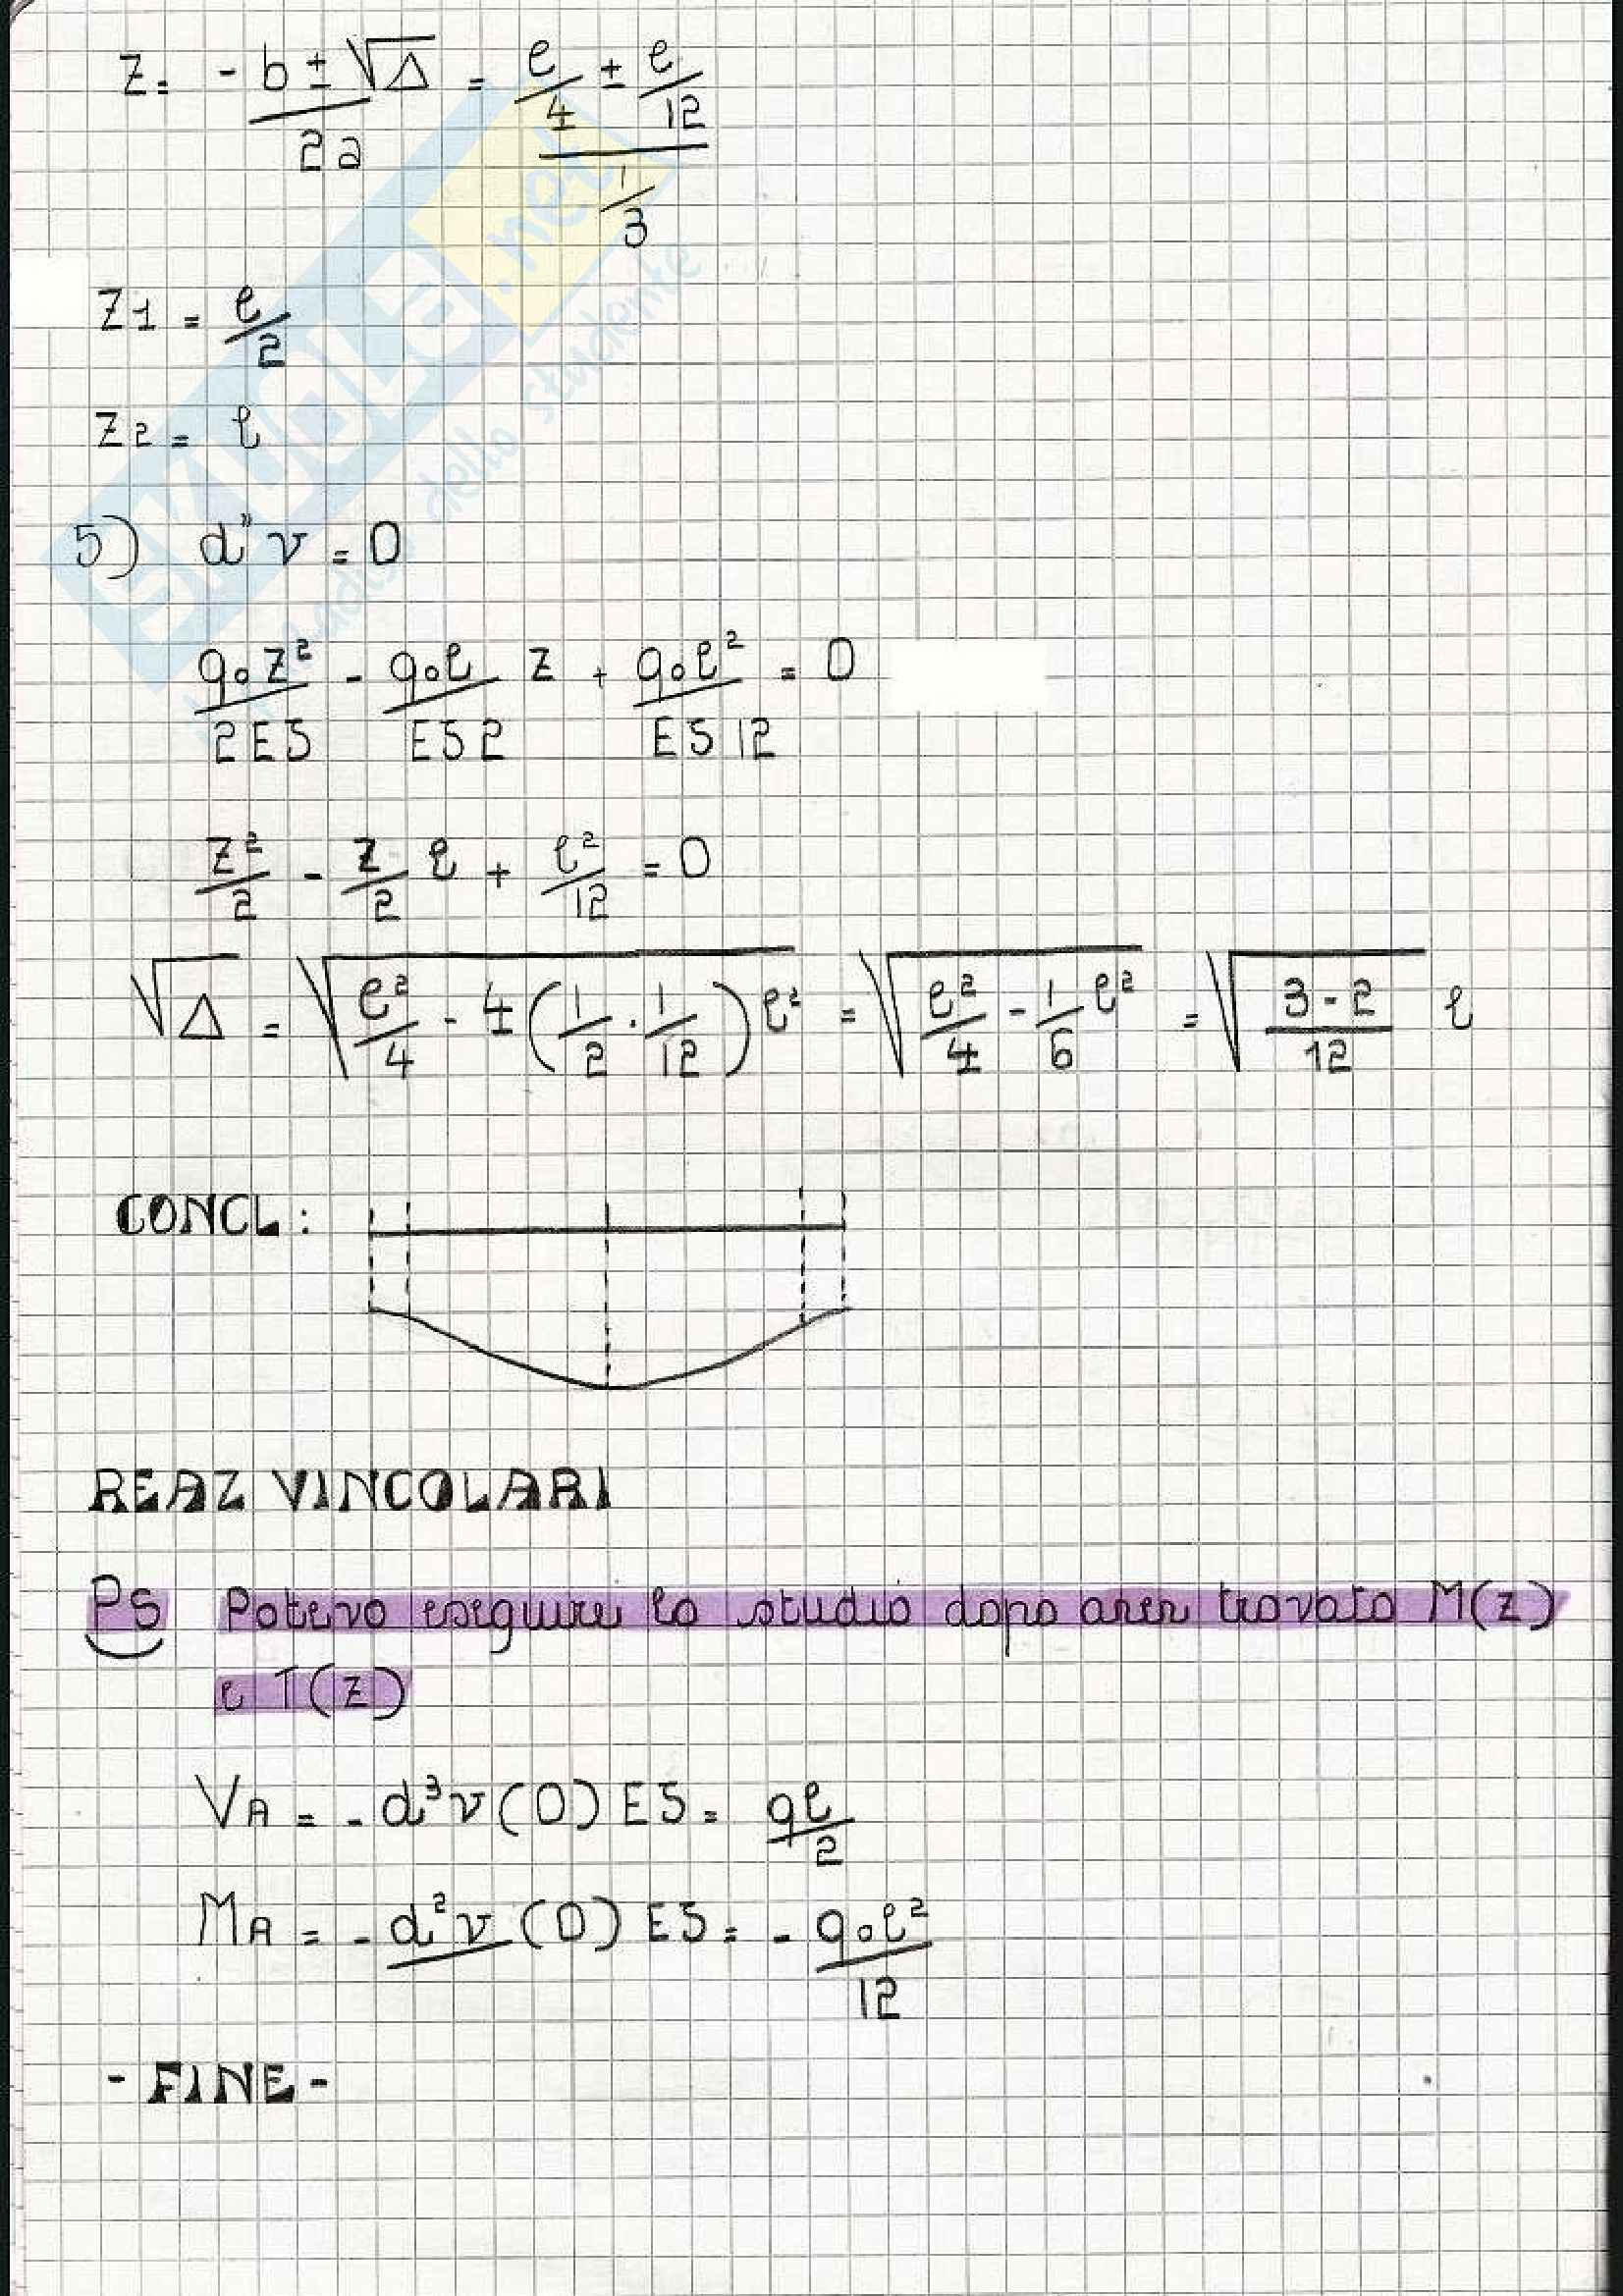 z = -b ± √Δ / 2a = (e/4 ± e/12) / (1/3)
z1 = e/2
z2 = l
5) d"v = 0
q₀z²/2EJ - q₀l/EJ2 z + q₀l²/EJ12 = 0
z²/2 - z/2 l + l²/12 = 0
√Δ = √(l²/4 - 4(1/2 · 1/12)l²) = √(l²/4 - 1/6 l²) = √((3-2)/12) l
CONCL:
REAZ VINCOLARI
PS Potevo eseguire lo studio dopo aver trovato M(z)
e T(z)
VA = -d³v(0) EJ = ql/2
MA = -d²v(0) EJ = -q₀l²/12
- FINE -
SKUOLA.net
dello studente